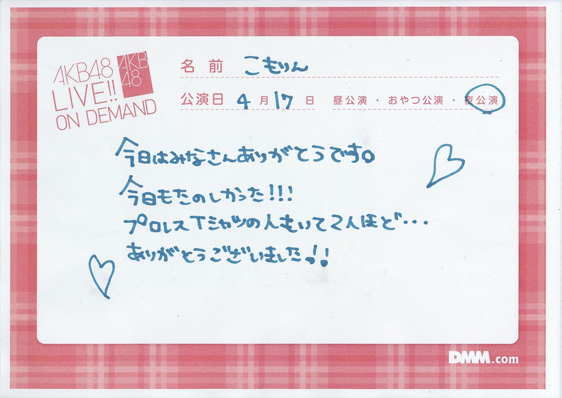 AKB48
LIVE!!
ON DEMAND
AKB
48
名前 こもりん
公演日 4月17日 昼公演・おやつ公演・夜公演
今日はみなさんありがとうです。
今日もたのしかった!!!
プロレスTシャツの人もいて2人ほど・・・
ありがとうございました!!
DMM.com